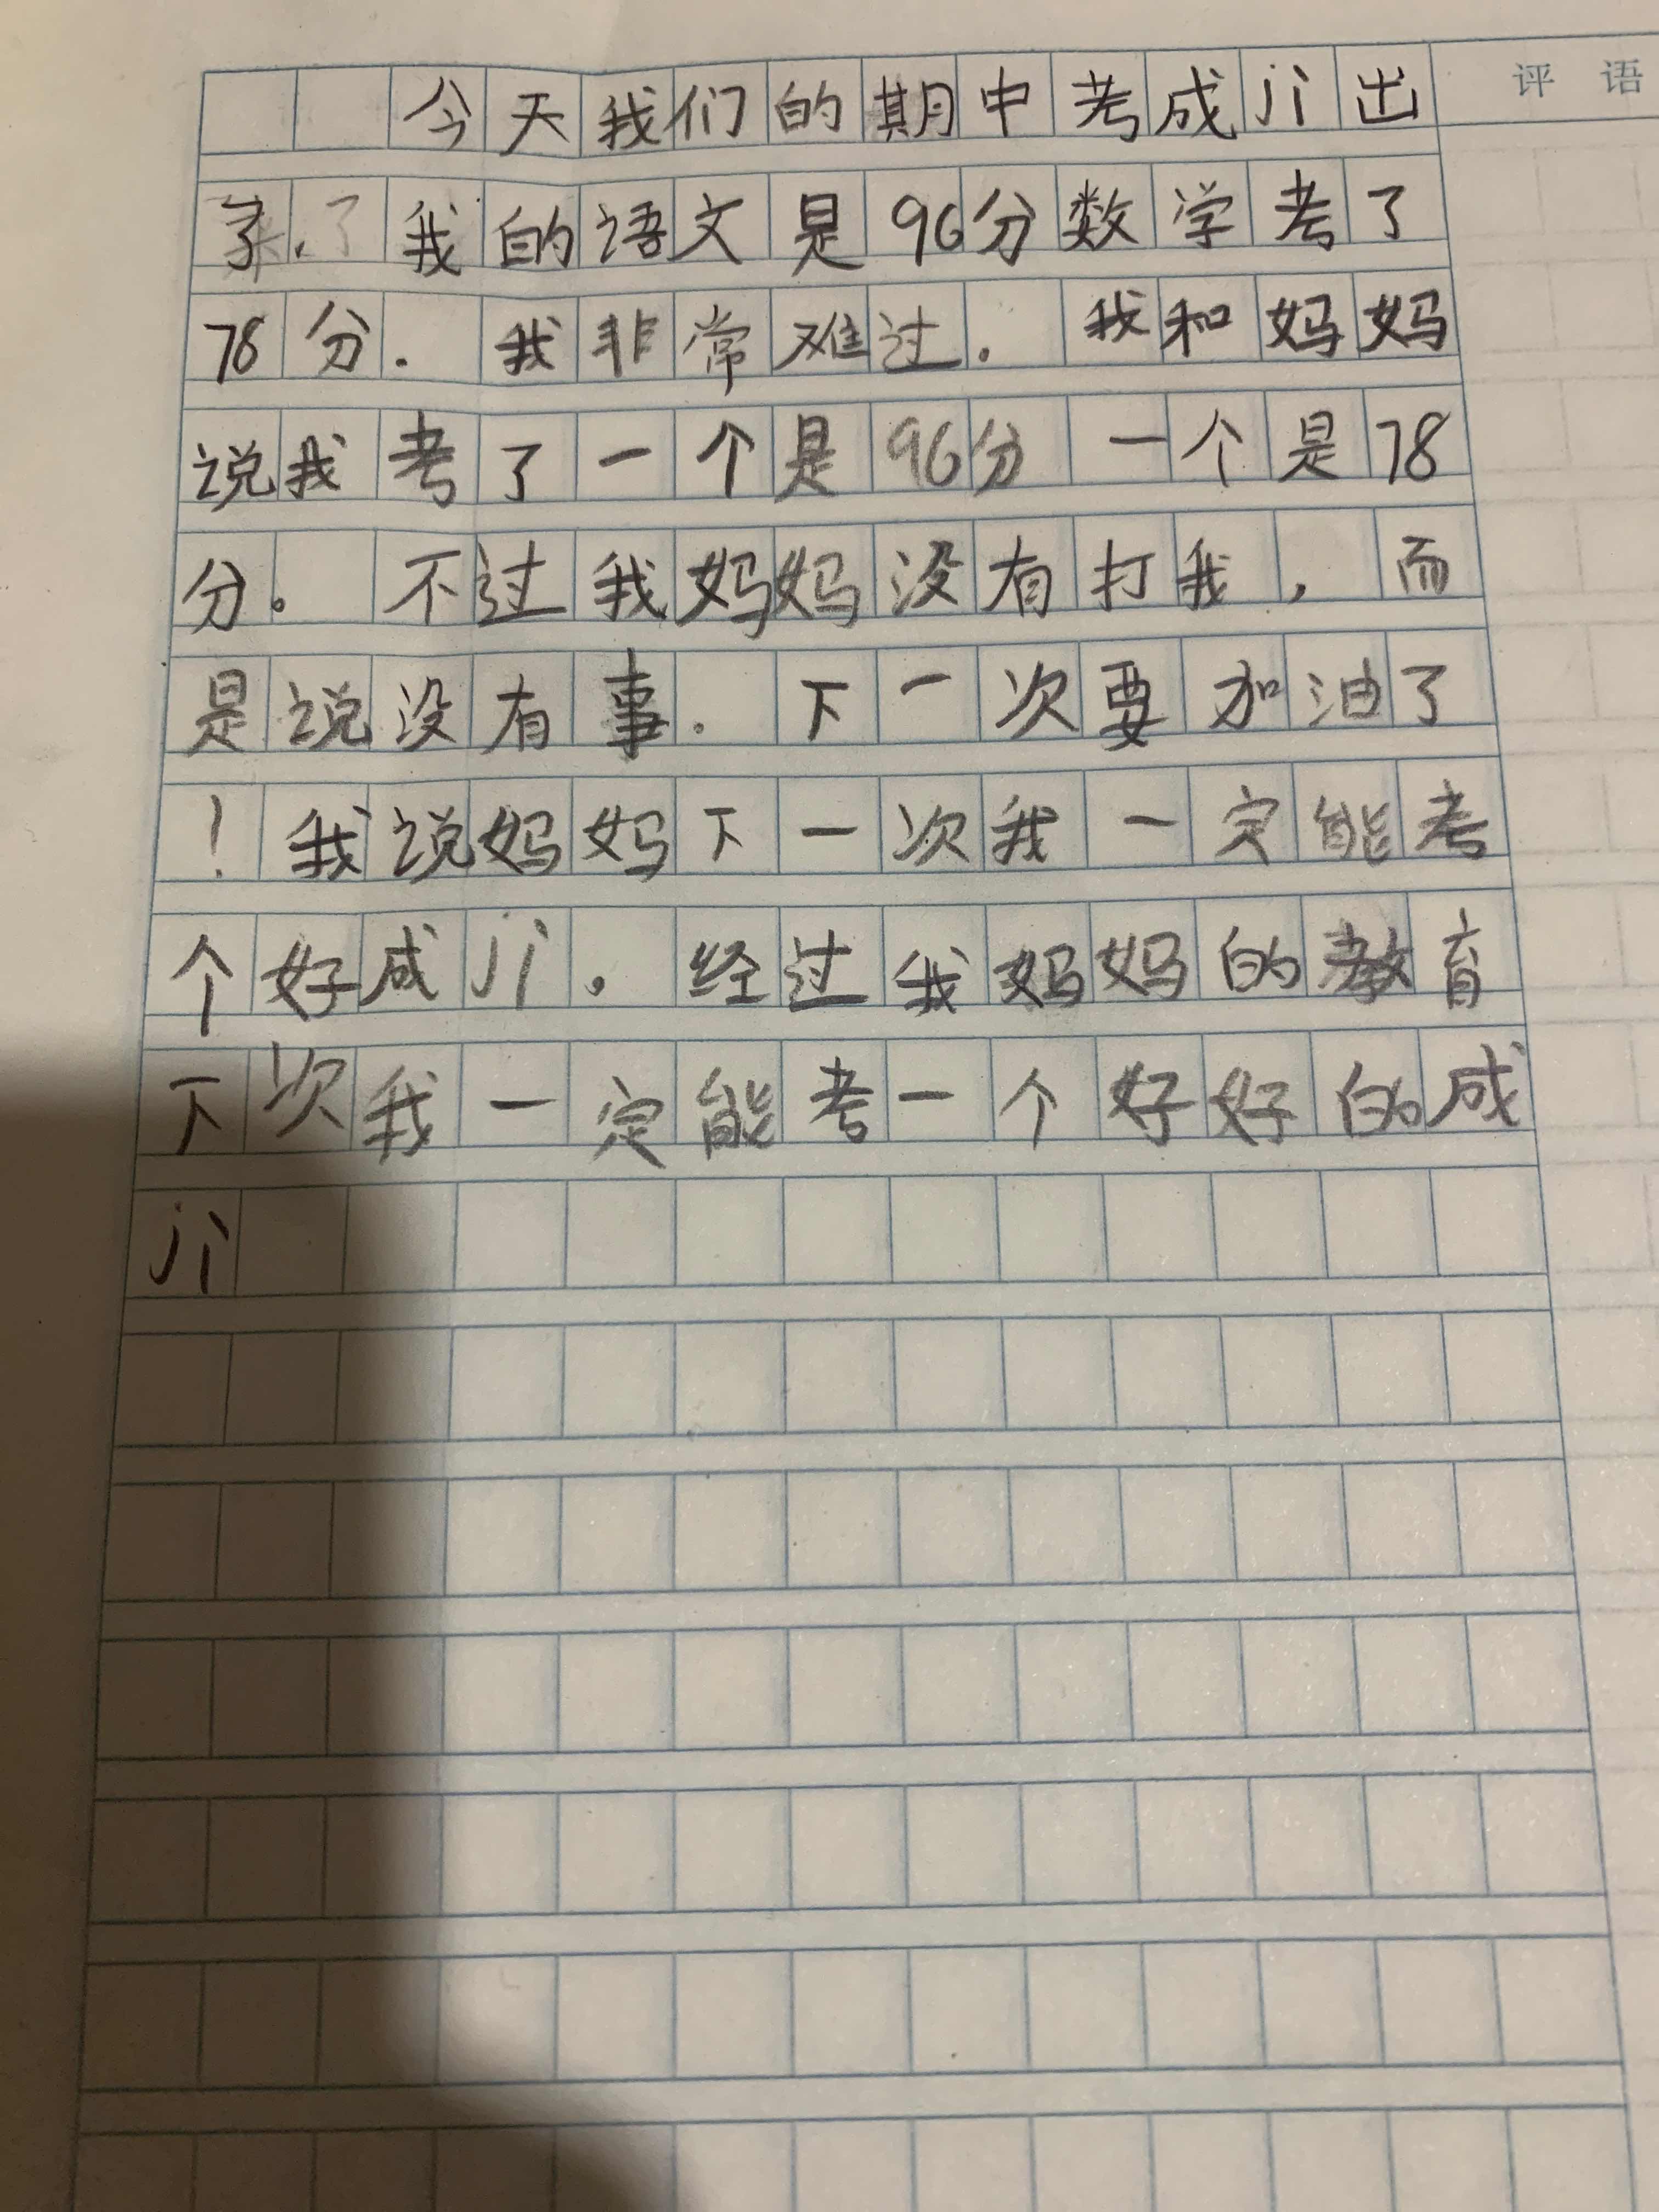 评 语
今天我们的期中考成jì出
了.了我的语文是96分数学考了
78分. 我非常难过. 我和妈妈
说我考了一个是96分 一个是78
分。 不过我妈妈没有打我, 而
是说没有事. 下一次要加油了
！我说妈妈下一次我一定能考
个好成jì。经过我妈妈的教育
下次我一定能考一个好好的成
jì